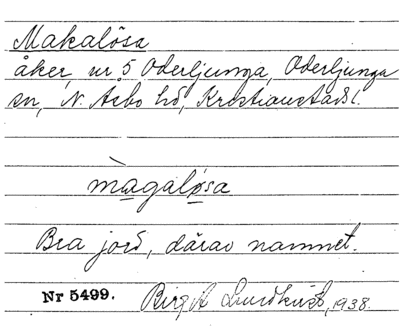 Makalösa
åker, nr. 5 Oderljunga, Oderljunga
sn, N. Åsbo hd, Kristianstads l.
màgaløsa
Bra jord, därav namnet.
Nr 5499. Birgit Lundkvist, 1938.